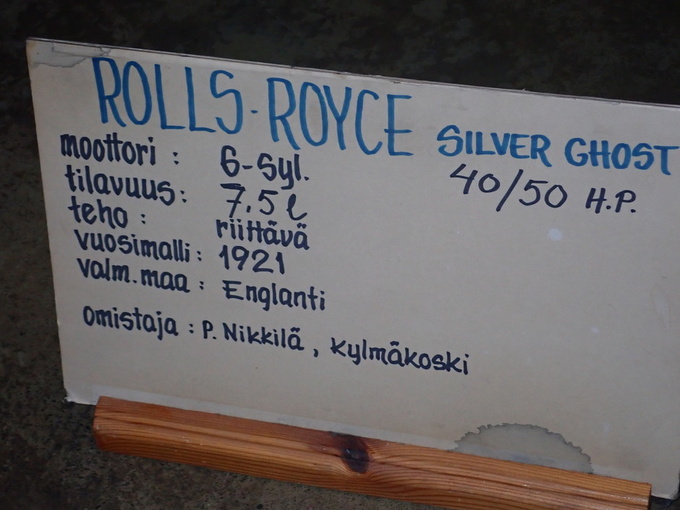 ROLLS-ROYCE SILVER GHOST
40/50 H.P.
moottori : 6-syl.
tilavuus : 7,5 l
teho : riittävä
vuosimalli : 1921
valm.maa : Englanti
omistaja : P. Nikkilä, Kylmäkoski